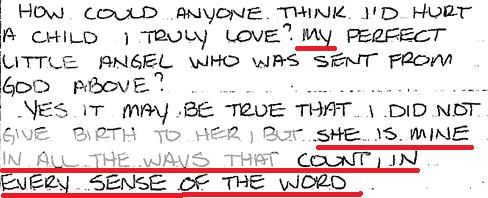 HOW COULD ANYONE THINK I'D HURT
A CHILD I TRULY LOVE? MY PERFECT
LITTLE ANGEL WHO WAS SENT FROM
GOD ABOVE?
YES IT MAY BE TRUE THAT I DID NOT
GIVE BIRTH TO HER, BUT SHE IS MINE
IN ALL THE WAYS THAT COUNT, IN
EVERY SENSE OF THE WORD